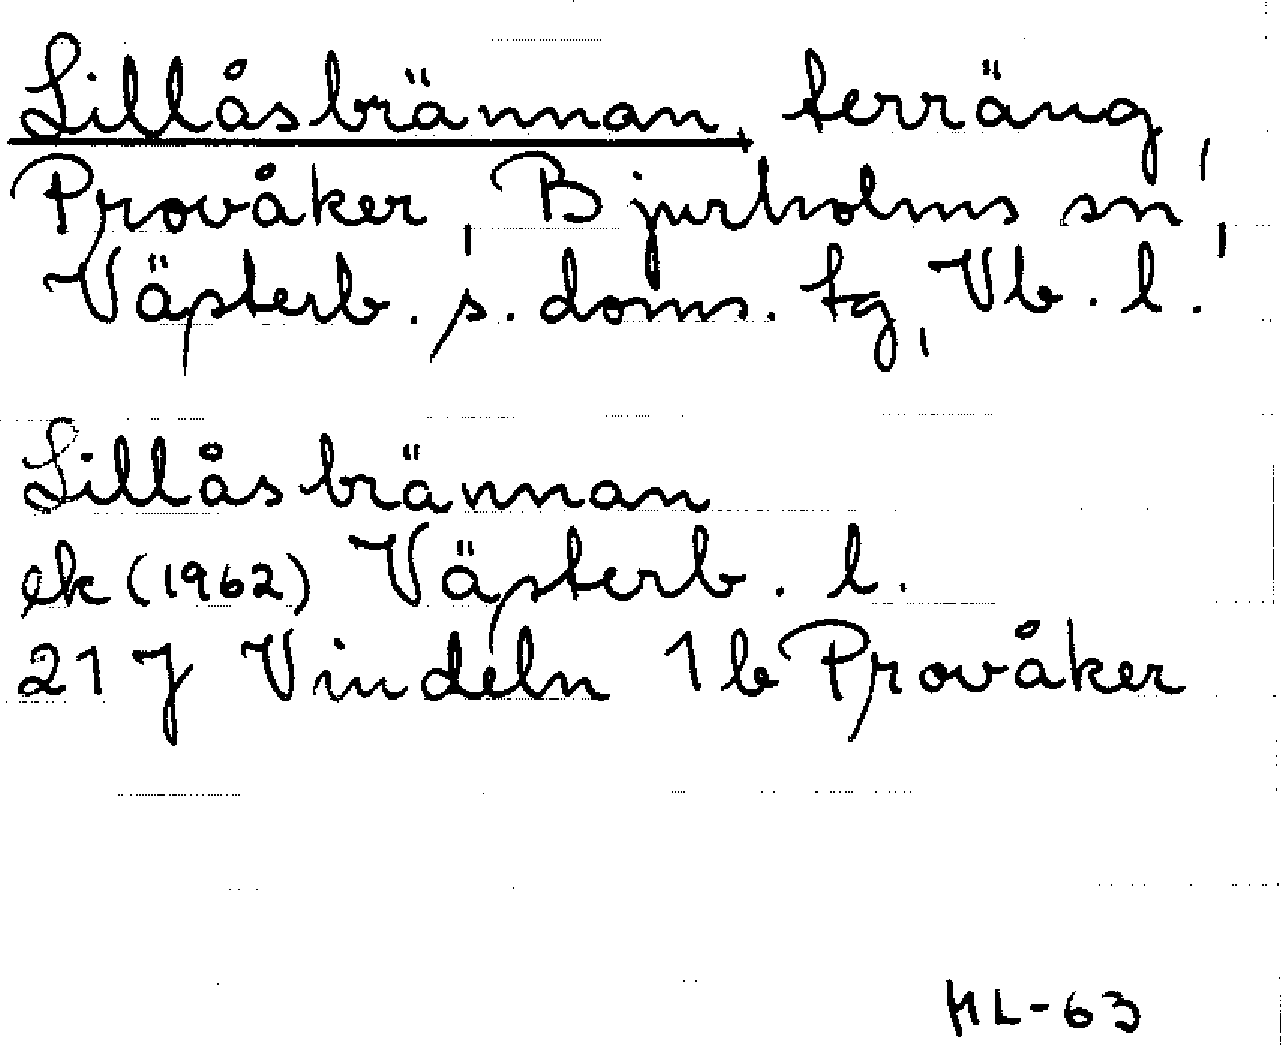 Lillåsbrännan, terräng,
Provåker, Bjurholms sn,
Västerb. s. doms. tg, Vb. l.
Lillåsbrännan
ek (1962) Västerb. l.
21 J Vindeln 1b Provåker
HL-63